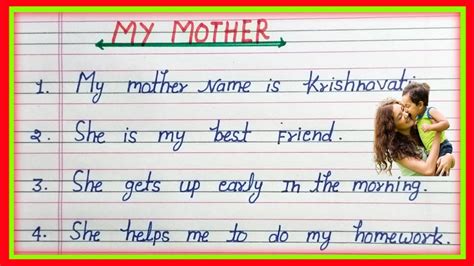 MY MOTHER
1. My mother Name is Krishnavati
2. She is my best Friend.
3. She gets up early In the morning.
4. She helps me to do my homework.